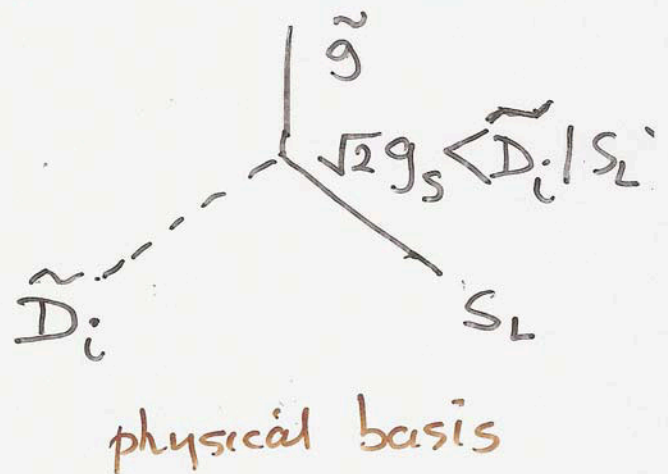 g̃
√2 g_s <D̃_i|S_L
D̃_i
S_L
physical basis